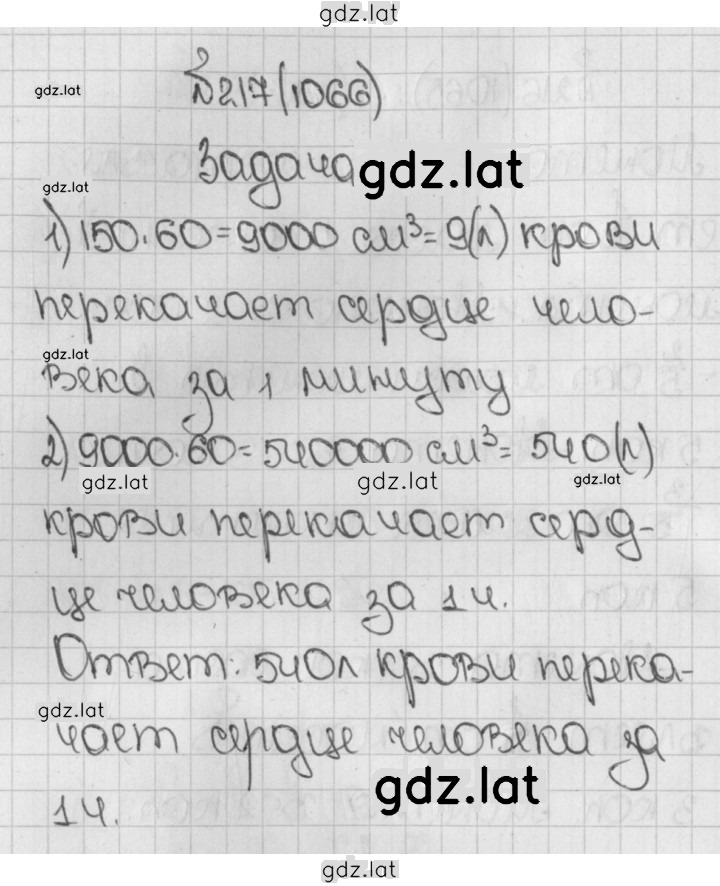 gdz.lat
№217(1066)
gdz.lat
Задача gdz.lat
gdz.lat
1) 150·60=9000 см³=9(л) крови
перекачает сердце чело-
gdz.lat
века за 1 минуту
2) 9000·60=540000 см³=540(л)
gdz.lat gdz.lat gdz.lat
крови перекачает серд-
це человека за 1ч.
Ответ: 540л крови перека-
gdz.lat
чает сердце человека за
1ч. gdz.lat
gdz.lat